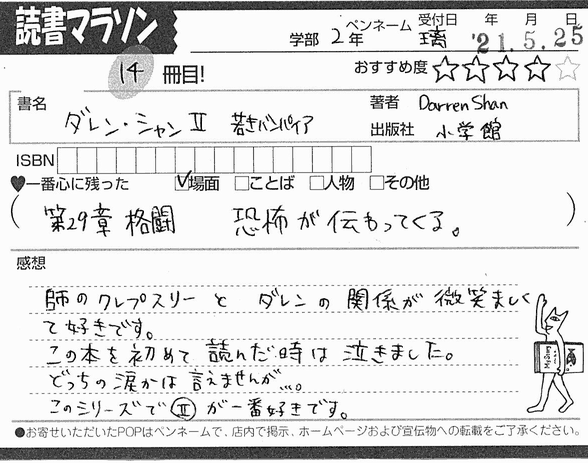 読書マラソン
学部 2年 ペンネーム 璃 受付日 年 月 日 '21.5.25
14 冊目! おすすめ度 ☆☆☆☆☆
書名 ダレン・シャンⅡ 若きバンパイア 著者 Darren Shan
出版社 小学館
ISBN
♥一番心に残った ☑場面 □ことば □人物 □その他
(第29章 格闘 恐怖が伝もってくる。)
感想
師のクレプスリーと ダレンの関係が微笑ましく
て好きです。
この本を初めて読んだ時は泣きました。
どっちの涙かは言えませんが…。
このシリーズでⅡが一番好きです。
●お寄せいただいたPOPはペンネームで、店内で掲示、ホームページおよび宣伝物への転載をご了承ください。